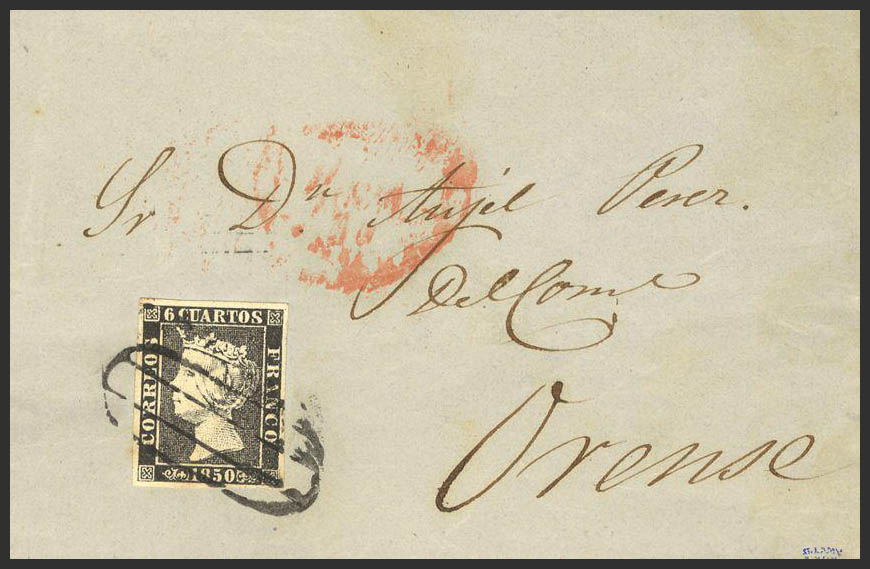 Sr Dn Anjel Perez.
Del Com.o
Orense
6 CUARTOS
CORREOS
FRANCO
1850